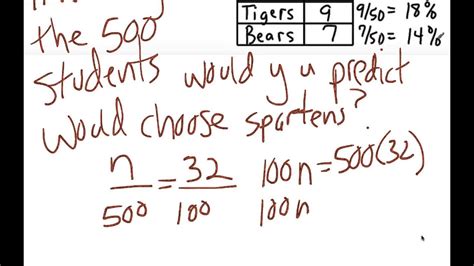 Tigers 9 9/50 = 18%
Bears 7 7/50 = 14%
the 500
students would y u predict
would choose spartens?
n = 32 100n = 500(32)
500 100 100n